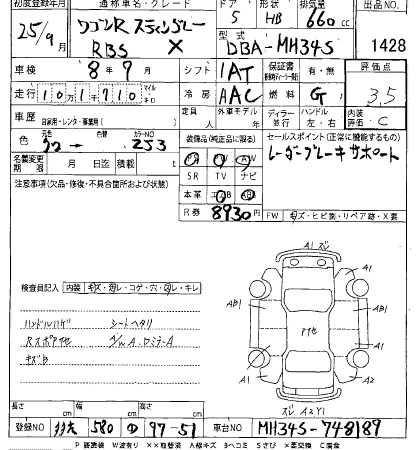 初度登録年月 通称車名・グレード ドア 形状 排気量 出品NO
25/9 ワゴンR スティングレー 5 HB 660cc
RBS X DBA-MH34S 1428
車検 8年7月 シフト IAT 保証書 有・無 評価点
走行 10万1千710 マイル キロ 冷房 AAC 燃料 G 3.5
車歴 自家用・レンタ・事業用( ) 定員 人 外車モデル 年 ディーラー 並行 ハンドル 左・右 内装評価 C
色 色替 カラーNO 253 装備品(純正品に限る) セールスポイント(正常に機能するもの)
PS PW AW レーダーブレーキサポート
名義変更期限 月 日迄 積載 t SR TV ナビ
注意事項(欠品・修復・不具合箇所および状態) 本革 エアB
R券 8930円 FW キズ・ヒビ割・リペア跡・X要
検査員記入 内装 キズ・汚レ・コゲ・穴・スレ・キレ
A1 A1 AB1 AB1 A1 A2
ハンドルハゲ シートヘタリ
キズB
長さ cm 幅 cm 高さ cm
登録NO 580 97-51 車台NO MH34S-748189
P要塗装 W波有り ××取替済 A線キズ Bヘコミ Sさび ×要交換 C腐食